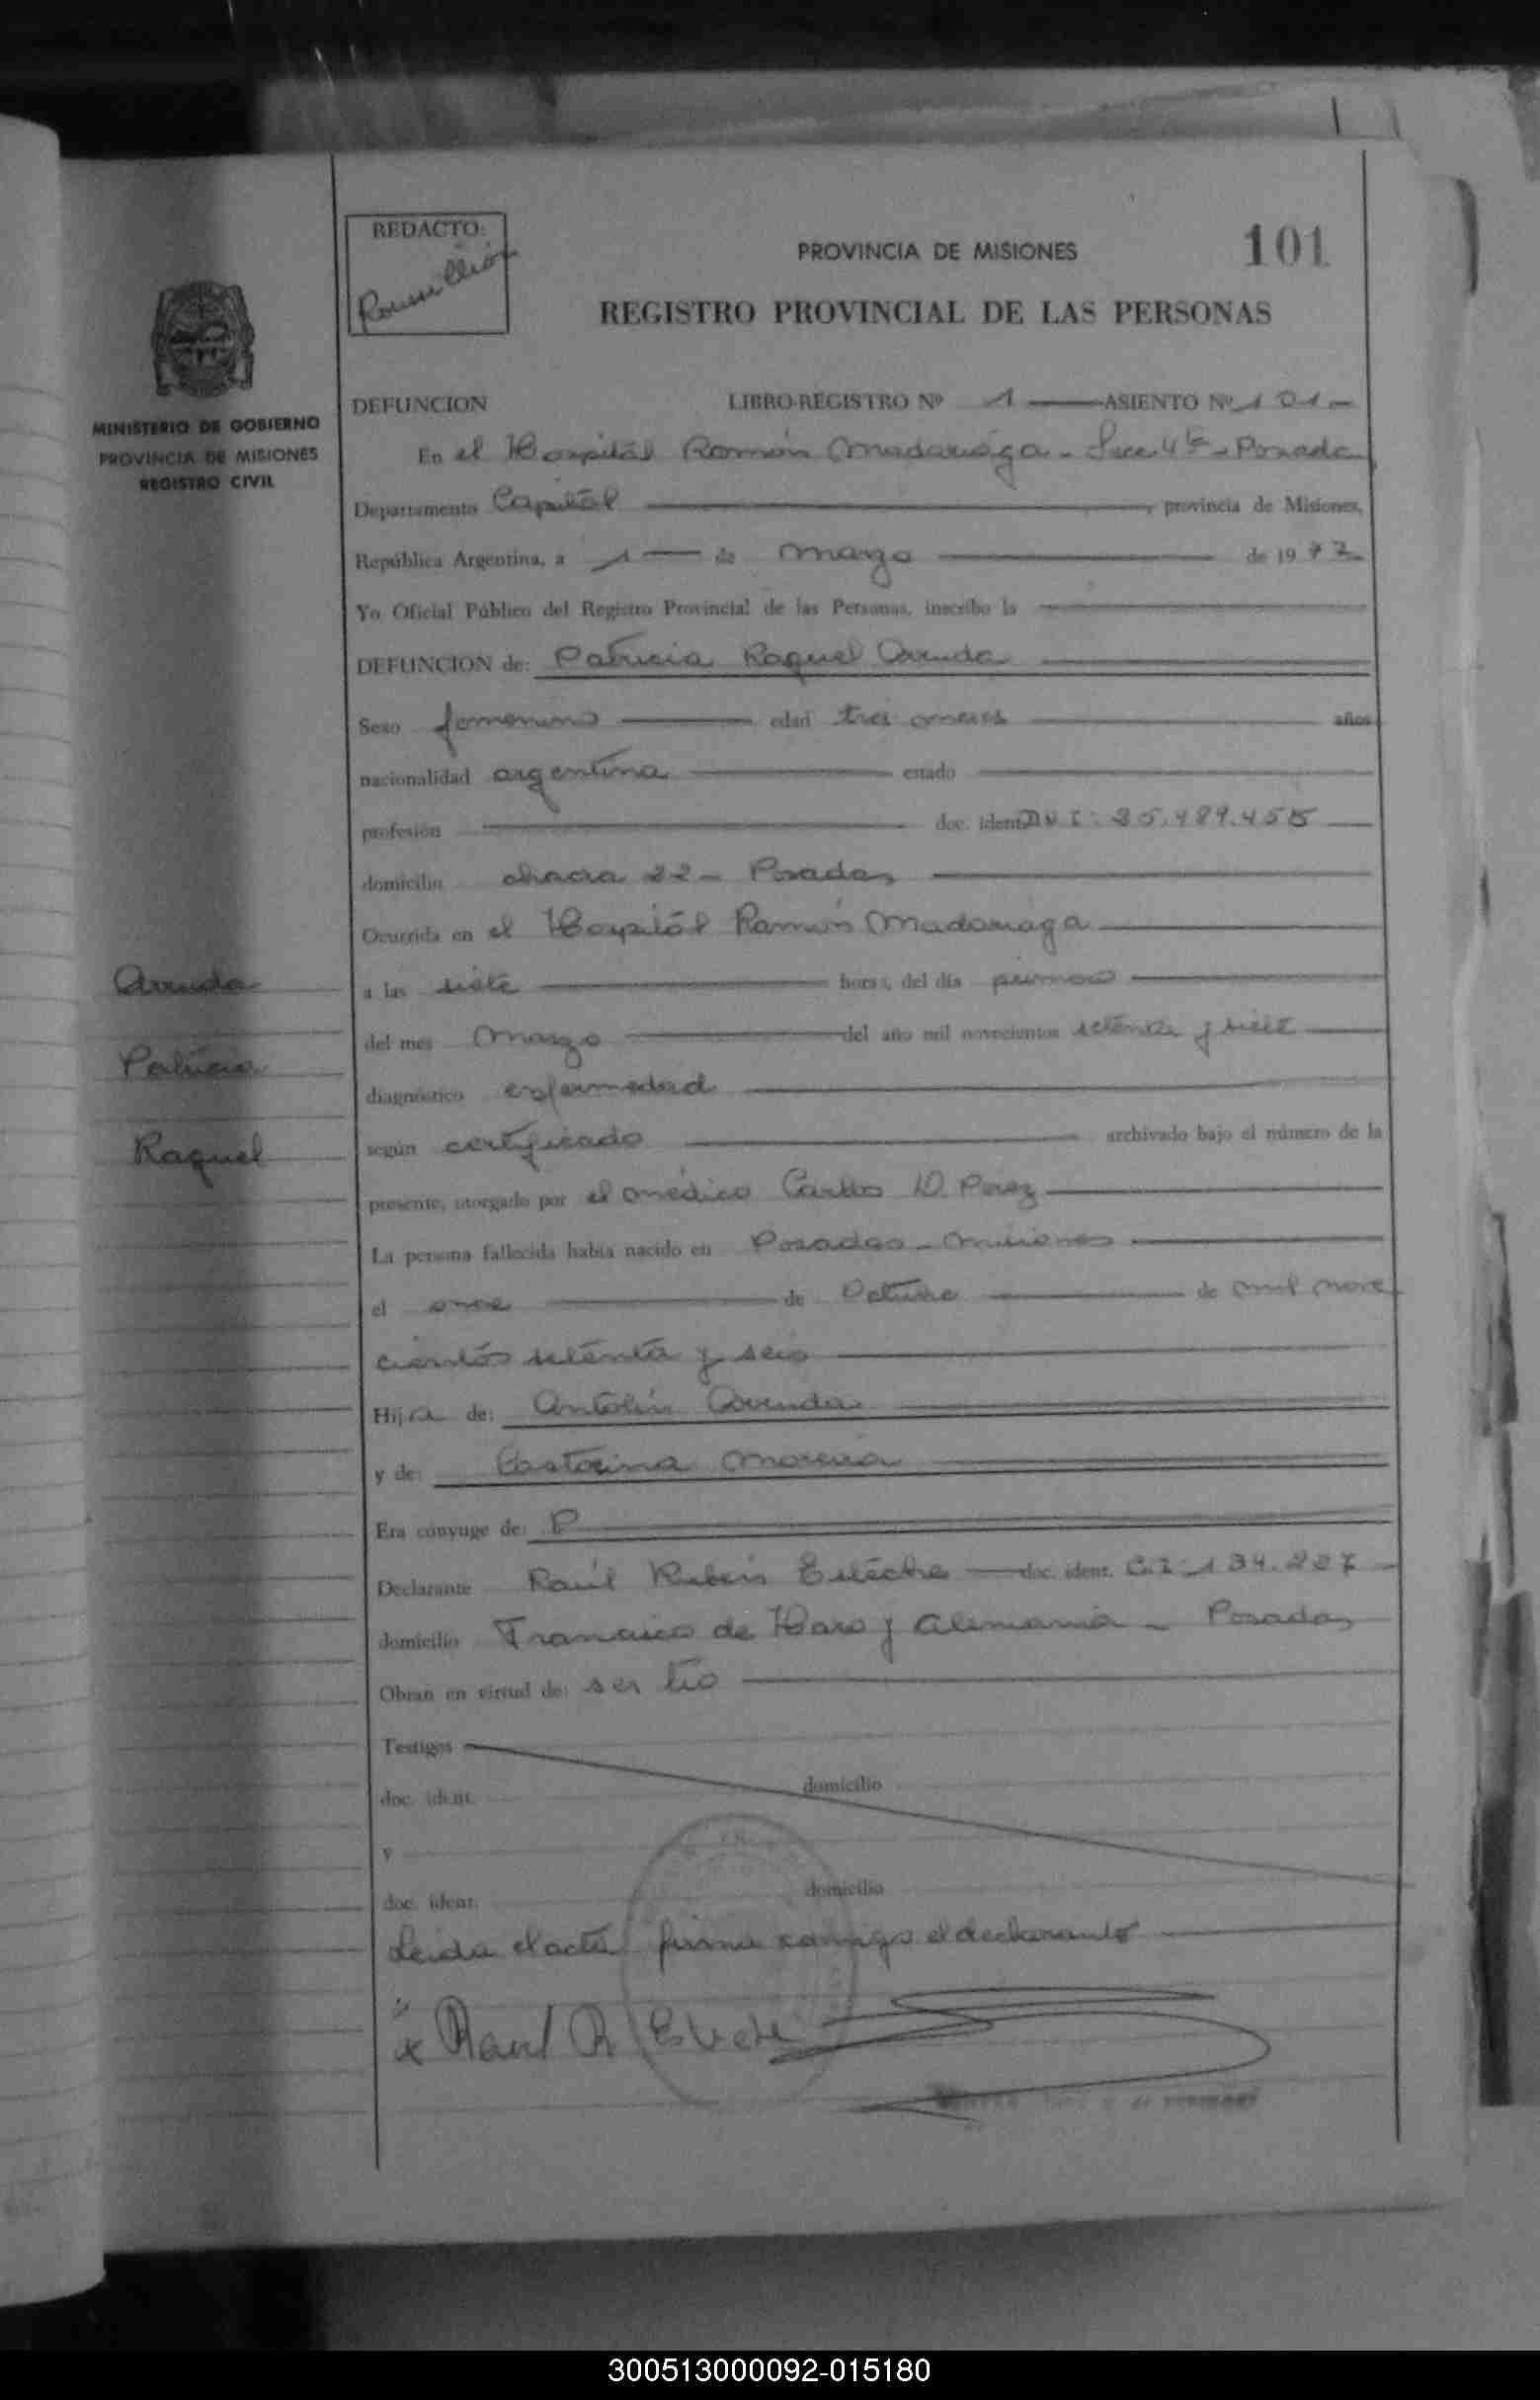 REDACTO:
PROVINCIA DE MISIONES
101
REGISTRO PROVINCIAL DE LAS PERSONAS
MINISTERIO DE GOBIERNO
PROVINCIA DE MISIONES
REGISTRO CIVIL
DEFUNCION LIBRO-REGISTRO Nº 1 ASIENTO Nº 101-
En el Hospital Ramón Madariaga - Secc 4ta - Posadas
Departamento Capital, provincia de Misiones,
República Argentina, a 1 de Marzo de 1977
Yo Oficial Público del Registro Provincial de las Personas, inscribo la
DEFUNCION de: Patricia Raquel Arruda
Sexo femenino edad tres meses años
nacionalidad argentina estado
profesión doc. ident. DNI: 25.489.455
domicilio chacra 22 - Posadas
Ocurrida en el Hospital Ramón Madariaga
a las siete horas, del día primero
del mes Marzo del año mil novecientos setenta y siete
diagnóstico enfermedad
según certificado archivado bajo el número de la
presente, otorgado por el médico Carlos D. Perez
La persona fallecida había nacido en Posadas - Misiones
el once de Octubre de mil nove
cientos setenta y seis
Hija de: Antolín Arruda
y de: Pastorina Moreira
Era cónyuge de: P
Declarante Raúl Rubén doc. ident. C.I. 134.227
domicilio Francisco de Haro y Alemania - Posadas
Obran en virtud de: ser tío
Testigos
doc. ident. domicilio
y
doc. ident. domicilio
Leida el acta firma conmigo el declarante
x Raul R
Arruda
Patricia
Raquel
300513000092-015180